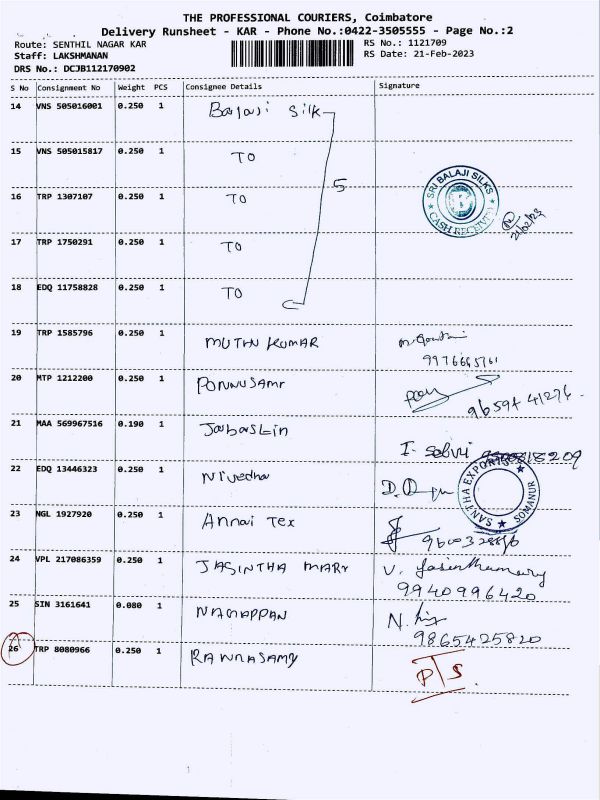 THE PROFESSIONAL COURIERS, Coimbatore
Delivery Runsheet - KAR - Phone No.:0422-3505555 - Page No.:2
Route: SENTHIL NAGAR KAR
RS No.: 1121709
Staff: LAKSHMANAN
RS Date: 21-Feb-2023
DRS No.: DCJB112170902
S No Consignment No Weight PCS Consignee Details Signature
14 VNS 505016001 0.250 1 Balaji Silk
15 VNS 505015817 0.250 1 TO
5
16 TRP 1307107 0.250 1 TO
SRI BALAJI SILKS
CASH RECEIVED
21/02/23
17 TRP 1750291 0.250 1 TO
18 EDQ 11758828 0.250 1 TO
19 TRP 1585796 0.250 1 MUTHU KUMAR
20 MTP 1212200 0.250 1 PONNUSAMY
21 MAA 569967516 0.190 1 Jabaslin
22 EDQ 13446323 0.250 1 Nivedha
SANTHA EXPORTS
SOMANUR
23 NGL 1927920 0.250 1 Annai Tex
24 VPL 217086359 0.250 1 JASINTHA MARY V. Jasinthamary
9940996420
25 SIN 3161641 0.080 1 NAGAPPAN
9865425820
26 TRP 8080966 0.250 1 P/S